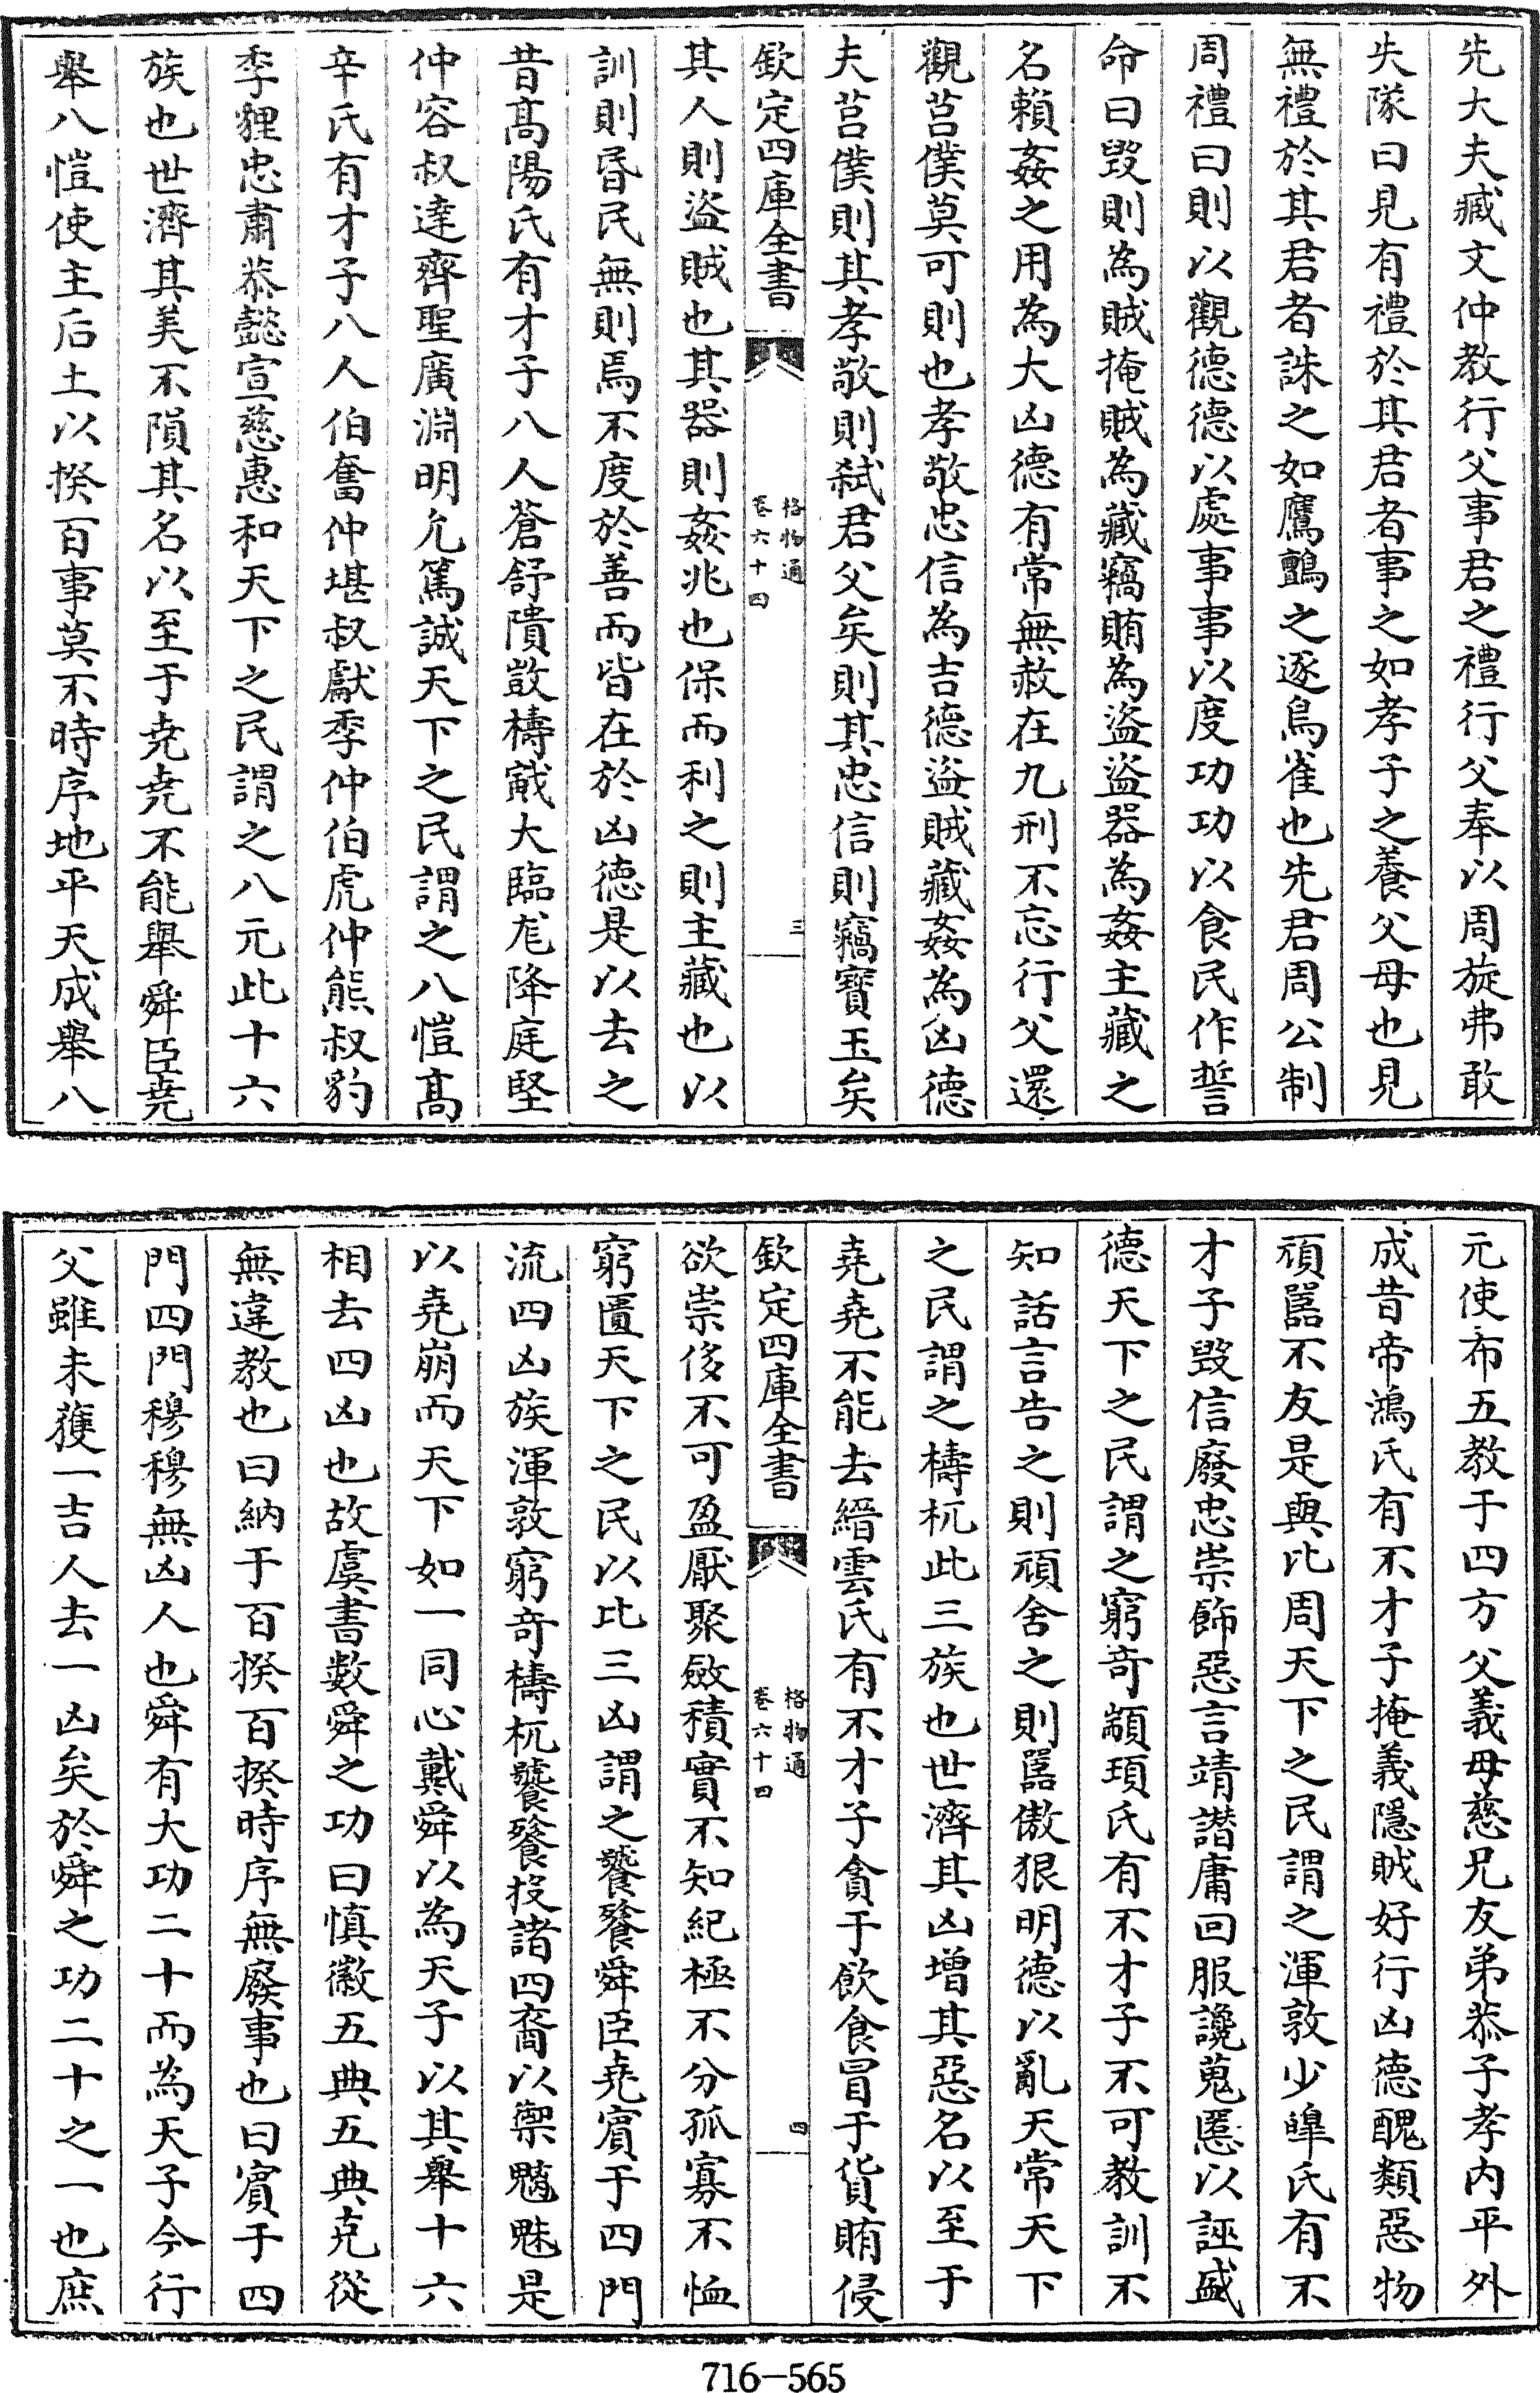 先大夫臧文仲教行父事君之禮行父奉以周旋弗敢
失隊曰見有禮於其君者事之如孝子之養父母也見
無禮於其君者誅之如鷹鸇之逐鳥雀也先君周公制
周禮曰則以觀德德以處事事以度功功以食民作誓
命曰毀則為賊掩賊為藏竊賄為盜盜器為姦主藏之
名賴姦之用為大凶德有常無赦在九刑不忘行父還
觀莒僕莫可則也孝敬忠信為吉德盜賊藏姦為凶德
夫莒僕則其孝敬則弒君父矣則其忠信則竊寶玉矣
欽定四庫全書
格物通
卷六十四
三
其人則盜賊也其器則姦兆也保而利之則主藏也以
訓則昏民無則焉不度於善而皆在於凶德是以去之
昔髙陽氏有才子八人蒼舒隤敱檮戭大臨尨降庭堅
仲容叔達齊聖廣淵明允篤誠天下之民謂之八愷髙
辛氏有才子八人伯奮仲堪叔獻季仲伯虎仲熊叔豹
季狸忠肅恭懿宣慈惠和天下之民謂之八元此十六
族也世濟其美不隕其名以至于堯堯不能舉舜臣堯
舉八愷使主后土以揆百事莫不時序地平天成舉八
元使布五教于四方父義母慈兄友弟恭子孝内平外
成昔帝鴻氏有不才子掩義隱賊好行凶德醜類惡物
頑嚚不友是與比周天下之民謂之渾敦少皥氏有不
才子毀信廢忠崇飾惡言靖譖庸回服讒蒐慝以誣盛
德天下之民謂之窮奇顓頊氏有不才子不可教訓不
知話言告之則頑舍之則嚚傲狠明德以亂天常天下
之民謂之檮杌此三族也世濟其凶增其惡名以至于
堯堯不能去縉雲氏有不才子貪于飲食冒于貨賄侵
欽定四庫全書
格物通
卷六十四
四
欲崇侈不可盈厭聚斂積實不知紀極不分孤寡不恤
窮匱天下之民以比三凶謂之饕餮舜臣堯賓于四門
流四凶族渾敦窮奇檮杌饕餮投諸四裔以禦魑魅是
以堯崩而天下如一同心戴舜以為天子以其舉十六
相去四凶也故虞書數舜之功曰慎徽五典五典克從
無違教也曰納于百揆百揆時序無廢事也曰賓于四
門四門穆穆無凶人也舜有大功二十而為天子今行
父雖未獲一吉人去一凶矣於舜之功二十之一也庶
716-565